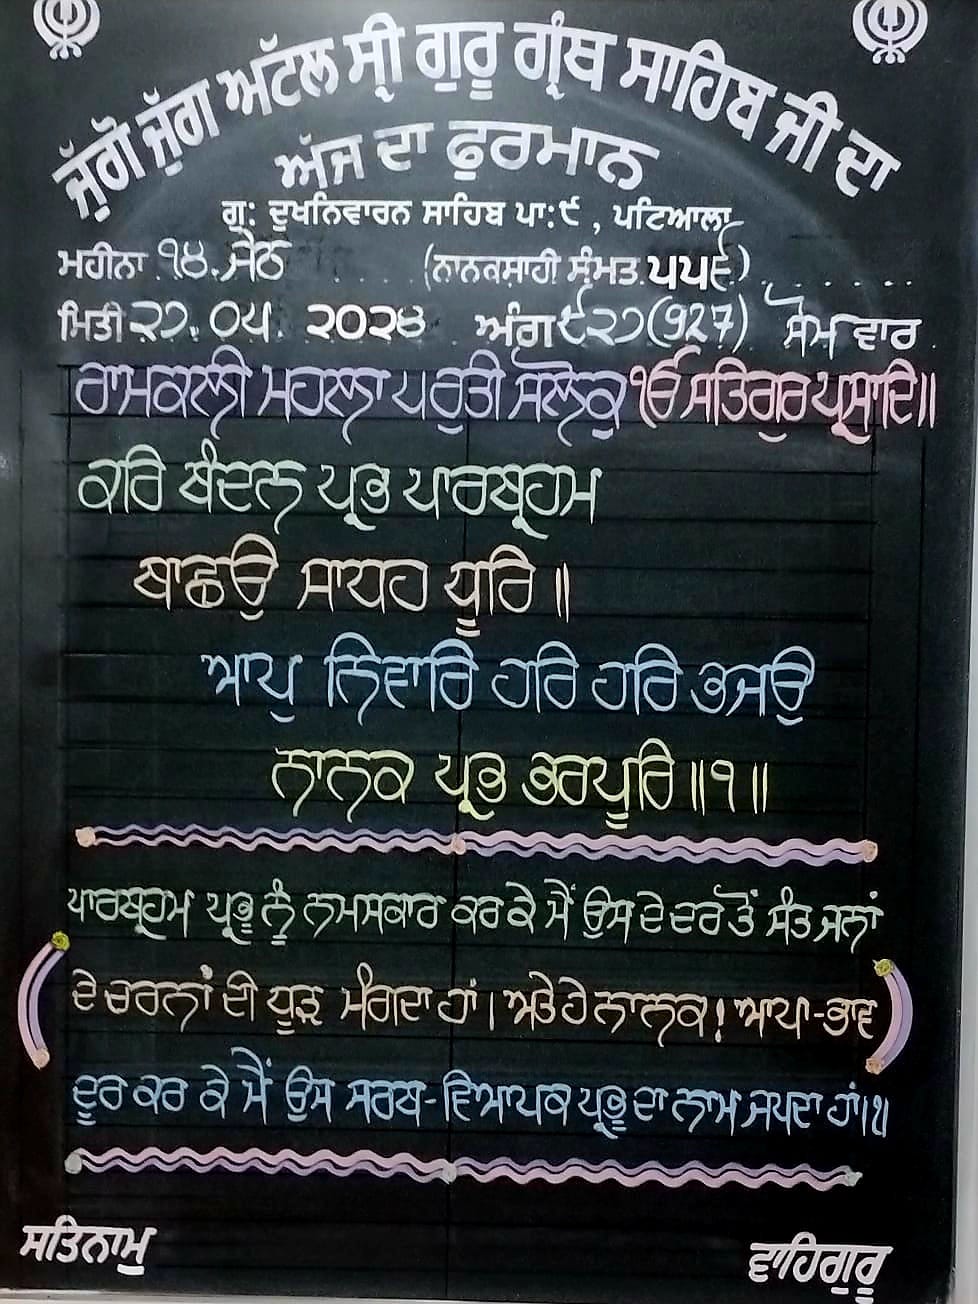 ਜੁੱਗੋ ਜੁੱਗ ਅਟੱਲ ਸ੍ਰੀ ਗੁਰੂ ਗ੍ਰੰਥ ਸਾਹਿਬ ਜੀ ਦਾ
ਅੱਜ ਦਾ ਫੁਰਮਾਨ
ਗੁ: ਦੁਖਨਿਵਾਰਨ ਸਾਹਿਬ ਪਾ:੯ , ਪਟਿਆਲਾ
ਮਹੀਨਾ ੧੪. ਜੇਠ (ਨਾਨਕਸ਼ਾਹੀ ਸੰਮਤ ੫੫੬)
ਮਿਤੀ ੨੭. ੦੫. ੨੦੨੪ ਅੰਗ ੯੨੭(927) ਸੋਮ ਵਾਰ
ਰਾਮਕਲੀ ਮਹਲਾ ੫ ਰੁਤੀ ਸਲੋਕੁ ੴ ਸਤਿਗੁਰ ਪ੍ਰਸਾਦਿ॥
ਕਰਿ ਬੰਦਨ ਪ੍ਰਭ ਪਾਰਬ੍ਰਹਮ
ਬਾਛਉ ਸਾਧਹ ਧੂਰਿ ॥
ਆਪੁ ਨਿਵਾਰਿ ਹਰਿ ਹਰਿ ਭਜਉ
ਨਾਨਕ ਪ੍ਰਭ ਭਰਪੂਰਿ ॥੧॥
ਪਾਰਬ੍ਰਹਮ ਪ੍ਰਭੂ ਨੂੰ ਨਮਸਕਾਰ ਕਰ ਕੇ ਮੈਂ ਉਸ ਦੇ ਦਰ ਤੋਂ ਸੰਤ ਜਨਾਂ
ਦੇ ਚਰਨਾਂ ਦੀ ਧੂੜ ਮੰਗਦਾ ਹਾਂ। ਅਤੇ ਹੇ ਨਾਨਕ! ਆਪਾ-ਭਾਵ
ਦੂਰ ਕਰ ਕੇ ਮੈਂ ਉਸ ਸਰਬ-ਵਿਆਪਕ ਪ੍ਰਭੂ ਦਾ ਨਾਮ ਜਪਦਾ ਹਾਂ।੧।
ਸਤਿਨਾਮੁ
ਵਾਹਿਗੁਰੂ